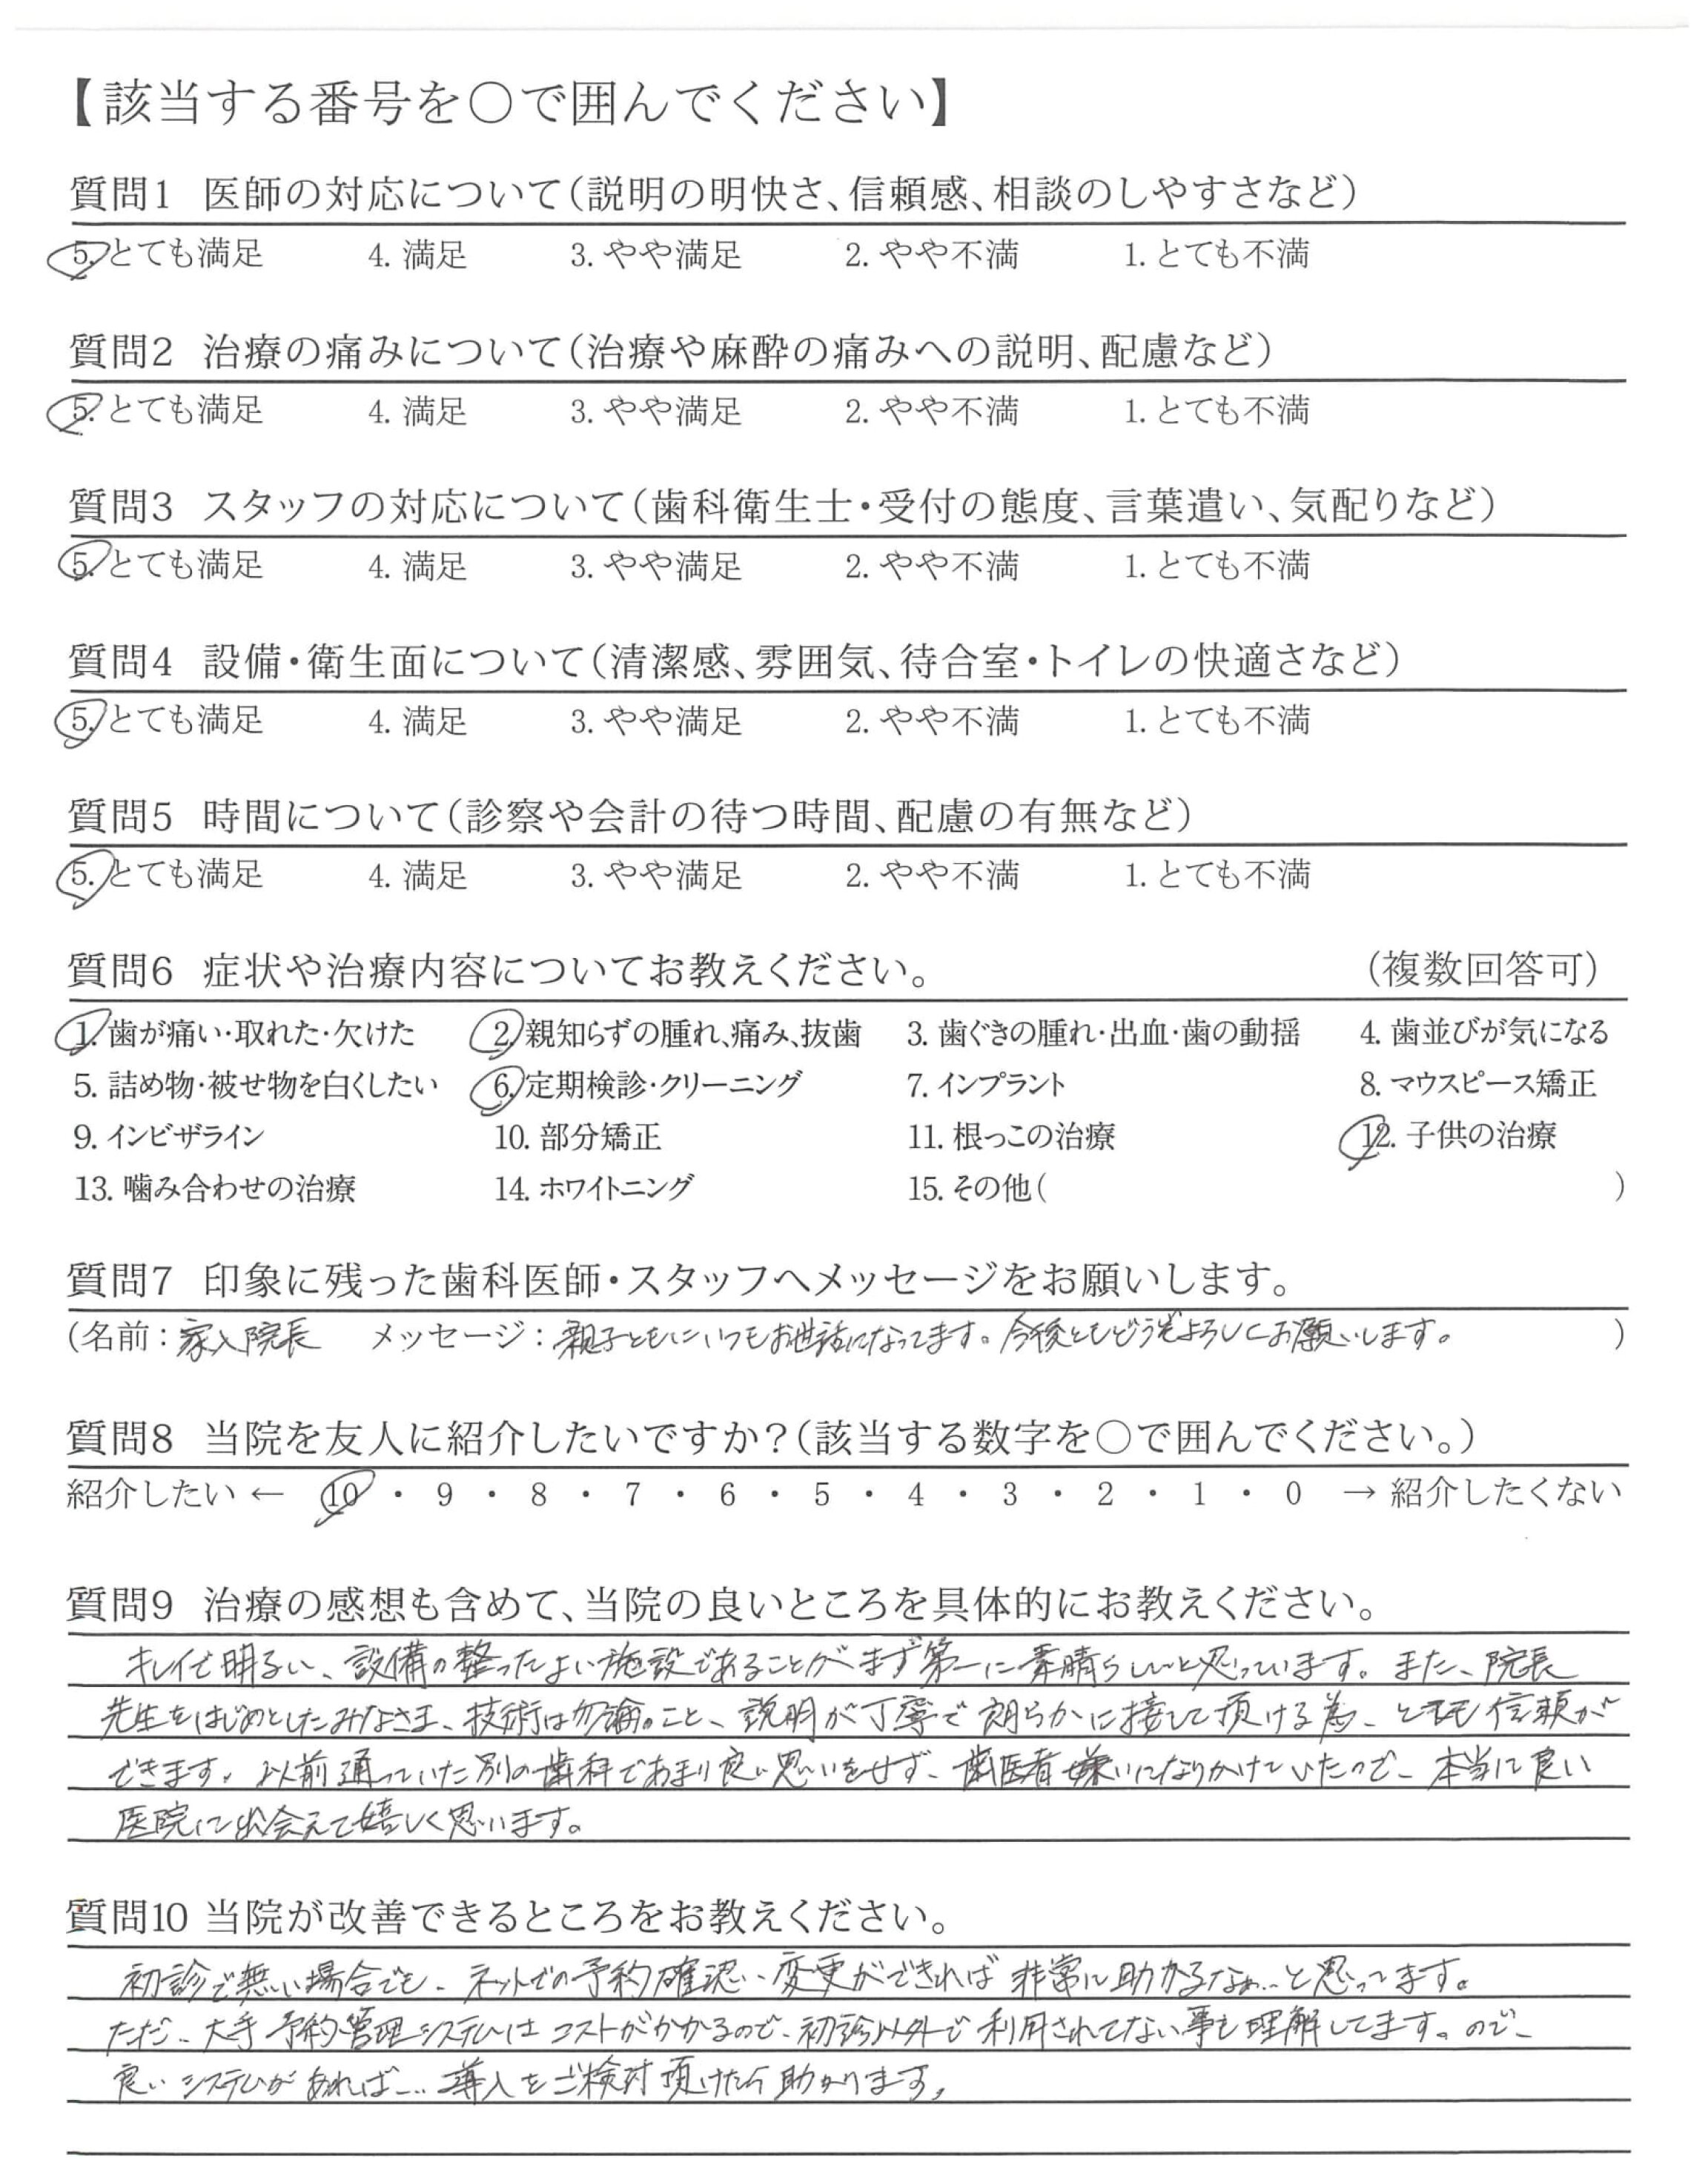 【該当する番号を○で囲んでください】
質問1 医師の対応について(説明の明快さ、信頼感、相談のしやすさなど)
5. とても満足 4. 満足 3. やや満足 2. やや不満 1. とても不満
質問2 治療の痛みについて(治療や麻酔の痛みへの説明、配慮など)
5. とても満足 4. 満足 3. やや満足 2. やや不満 1. とても不満
質問3 スタッフの対応について(歯科衛生士・受付の態度、言葉遣い、気配りなど)
5. とても満足 4. 満足 3. やや満足 2. やや不満 1. とても不満
質問4 設備・衛生面について(清潔感、雰囲気、待合室・トイレの快適さなど)
5. とても満足 4. 満足 3. やや満足 2. やや不満 1. とても不満
質問5 時間について(診察や会計の待つ時間、配慮の有無など)
5. とても満足 4. 満足 3. やや満足 2. やや不満 1. とても不満
質問6 症状や治療内容についてお教えください。 (複数回答可)
1. 歯が痛い・取れた・欠けた 2. 親知らずの腫れ、痛み、抜歯 3. 歯ぐきの腫れ・出血・歯の動揺 4. 歯並びが気になる
5. 詰め物・被せ物を白くしたい 6. 定期検診・クリーニング 7. インプラント 8. マウスピース矯正
9. インビザライン 10. 部分矯正 11. 根っこの治療 12. 子供の治療
13. 噛み合わせの治療 14. ホワイトニング 15. その他( )
質問7 印象に残った歯科医師・スタッフへメッセージをお願いします。
(名前:家入院長 メッセージ:親子ともにいつもお世話になってます。今後ともどうぞよろしくお願いします。 )
質問8 当院を友人に紹介したいですか?(該当する数字を○で囲んでください。)
紹介したい ← 10 ・ 9 ・ 8 ・ 7 ・ 6 ・ 5 ・ 4 ・ 3 ・ 2 ・ 1 ・ 0 → 紹介したくない
質問9 治療の感想も含めて、当院の良いところを具体的にお教えください。
キレイで明るい、設備の整ったよい施設であることがまず第一に素晴らしいと思っています。また、院長
先生をはじめとしたみなさま、技術は勿論のこと、説明が丁寧で朗らかに接して頂ける為、とても信頼が
できます。以前通っていた別の歯科であまり良い思いをせず、歯医者嫌いになりかけていたので、本当に良い
医院に出会えて嬉しく思います。
質問10 当院が改善できるところをお教えください。
初診で無い場合でも、ネットでの予約確認、変更ができれば非常に助かるなぁ…と思ってます。
ただ、大手予約管理システムはコストがかかるので、初診以外で利用されてない事も理解してます。ので、
良いシステムがあれば…導入をご検討頂けたら助かります。